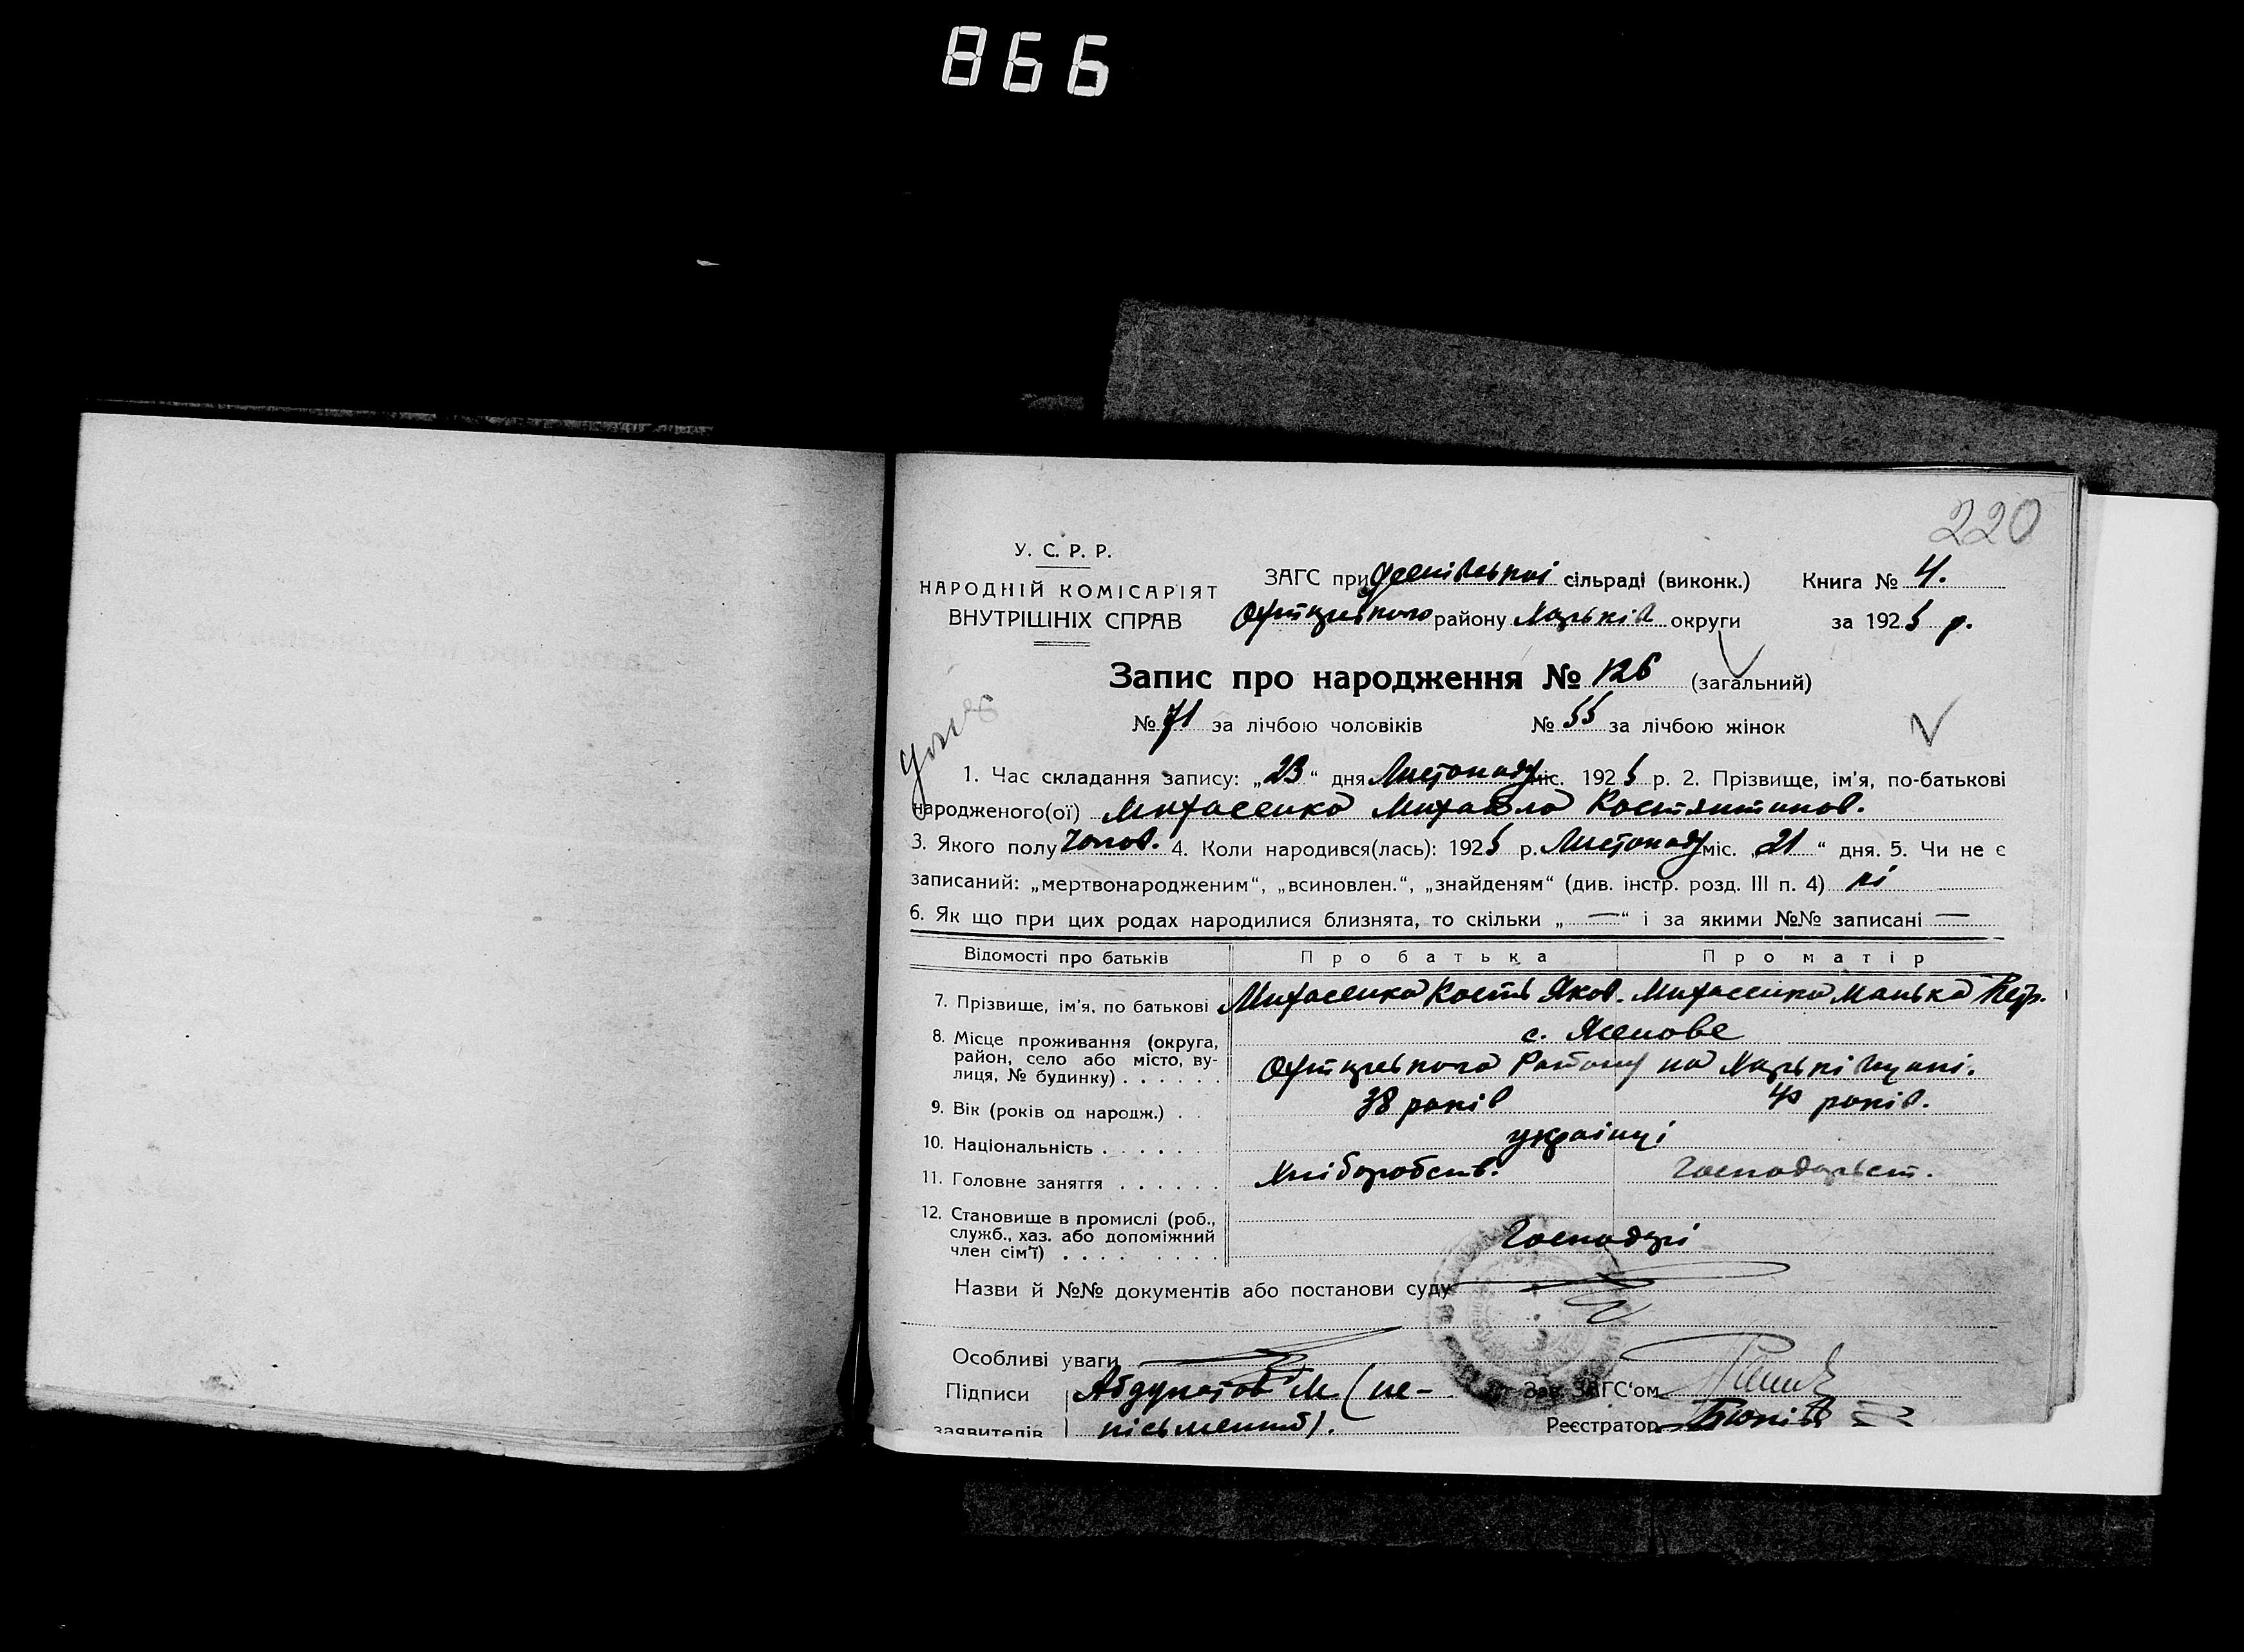 866
220
У. С. Р. Р.
НАРОДНІЙ КОМІСАРІЯТ
ВНУТРІШНІХ СПРАВ
ЗАГС при сільраді (виконк.) Книга № 4.
Охтирського району Харьків округи за 1925 р.
Запис про народження № 126 (загальний)
№ 71 за лічбою чоловіків № 55 за лічбою жінок
1. Час складання запису: „23“ дня Листопаду міс. 1925 р. 2. Прізвище, ім'я, по-батькові
народженого(ої) Михасенко Михайло Костянтинов.
3. Якого полу Чолов. 4. Коли народився(лась): 1925 р. Листопаду міс. „21“ дня. 5. Чи не є
записаний: „мертвонародженим“, „всиновлен.“, „знайденям“ (див. інстр. розд. III п. 4) ні
6. Як що при цих родах народилися близнята, то скільки „—“ і за якими №№ записані —
Відомості про батьків Про батька Про матір
7. Прізвище, ім'я, по батькові Михасенко Кость Яков. Михасенко Манька Петр.
8. Місце проживання (округа, район, село або місто, вулиця, № будинку) . . . . . .
с. Ясенове
Охтирського Району на Харьківщині.
9. Вік (років од народж.) . 38 років 40 років.
10. Національність . . . . . . . українці
11. Головне заняття . . . . . . Хліборобств. Господарьст.
12. Становище в промислі (роб., служб., хаз. або допоміжний член сім'ї) . . . . . . . . Господарі
Назви й №№ документів або постанови суду
Особливі уваги
Підписи М (не-
Зав. ЗАГС'ом
заявителів письменний).
Реєстратор